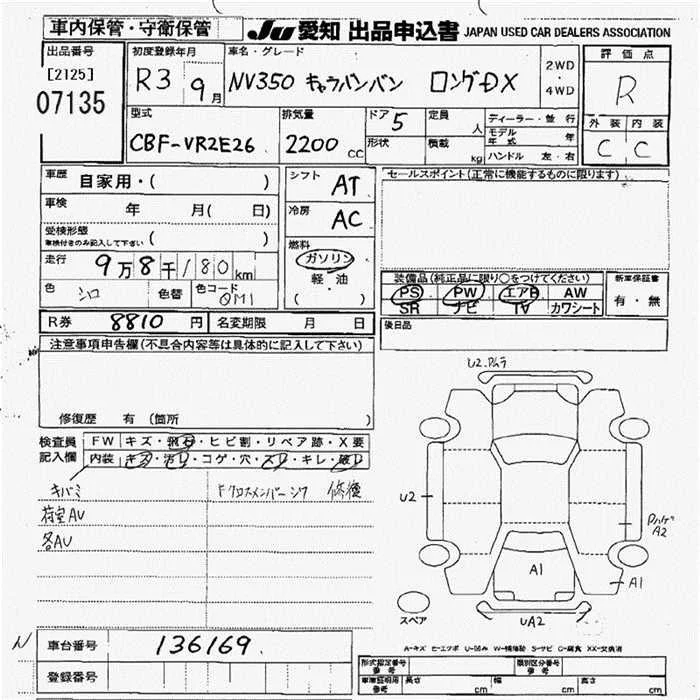 車内保管・守衛保管
JU 愛知 出品申込書 JAPAN USED CAR DEALERS ASSOCIATION
出品番号
[2125]
07135
初度登録年月
R3 9月
車名・グレード
NV350 キャラバンバン ロングDX
2WD
・
4WD
評価点
R
外装 内装
C C
型式
CBF-VR2E26
排気量
2200 CC
ドア 5
形状
定員 人
積載 kg
ディーラー・並行
モデル年式 年
ハンドル 左・右
車歴
自家用・( )
車検 年 月( 日)
受検形態
車検付きのみ記入して下さい ( )
走行
9万8千180km
色 シロ 色替 色コード QM1
シフト AT
冷房 AC
燃料
ガソリン
軽・油
( )
セールスポイント(正常に機能するものに限ります)
装備品(純正品に限り○をつけてください)
PS PW エアB AW
SR ナビ TV カワシート
新車保証書
有・無
後日品
R券 8810円 名変期限 月 日
注意事項申告欄(不具合内容等は具体的に記入して下さい)
修復歴 有 (箇所 )
検査員記入欄
FW キズ・飛石・ヒビ割・リペア跡・X要
内装 キズ・汚れ・コゲ・穴・スレ・キレ・破れ
キバミ
荷室AV
各AV
Fクロスメンバーシワ 修復
U2
U2
A2
A1
A1
UA2
スペア
A-キズ E-エクボ U-凹み W-補修跡 S-サビ C-腐食 XX-交換済
N
車台番号 136169
登録番号
型式指定番号 参考
類別区分番号 参考
車庫証明用 参考
長さ cm 幅 cm 高さ cm